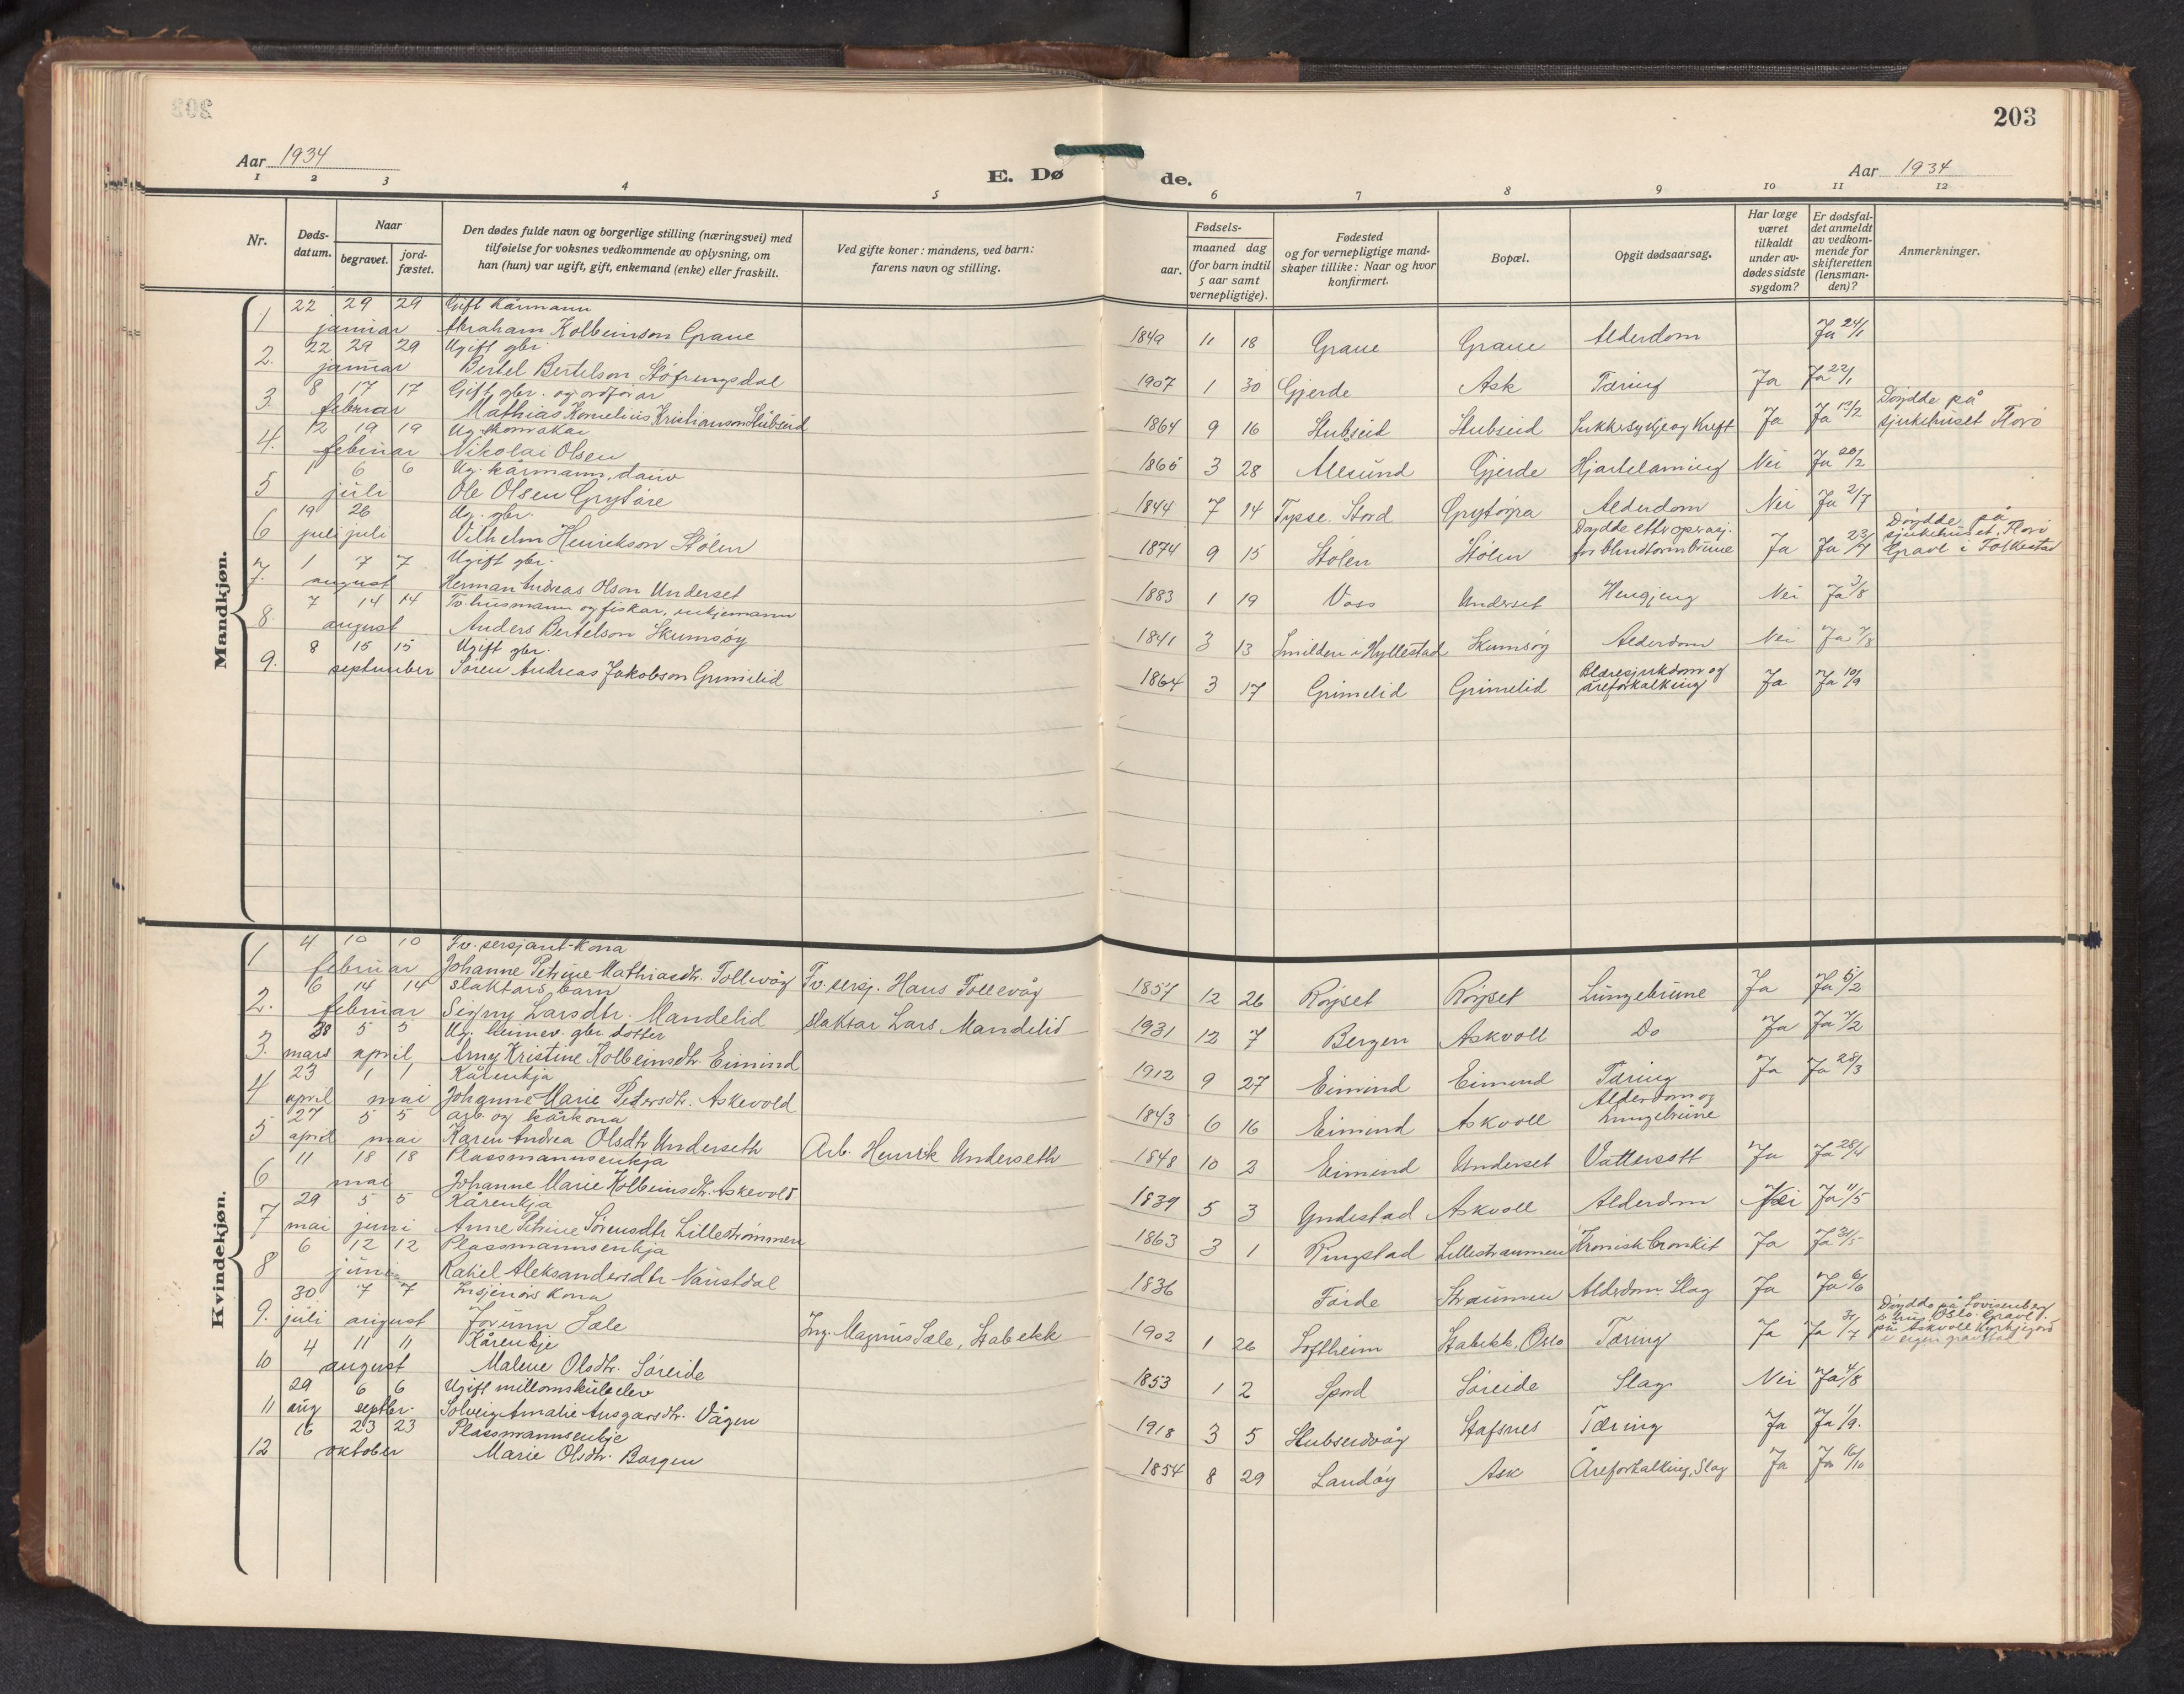 203
Aar 1934
E. Dø de.
Aar 1934
1 2 3 4 5 6 7 8 9 10 11 12
Nr.
Døds-datum.
Naar
begravet.
jord-fæstet.
Den dødes fulde navn og borgerlige stilling (næringsvei) med
tilføielse for voksnes vedkommende av oplysning, om
han (hun) var ugift, gift, enkemand (enke) eller fraskilt.
Ved gifte koner: mandens, ved barn:
farens navn og stilling.
Fødsels-
aar.
maaned dag
(for barn indtil
5 aar samt
vernepligtige).
Fødested
og for vernepligtige mand-
skaper tillike: Naar og hvor
konfirmert.
Bopæl.
Opgit dødsaarsag.
Har læge
været
tilkaldt
under av-
dødes sidste
sygdom?
Er dødsfal-
det anmeldt
av vedkom-
mende for
skifteretten
(lensman-
den)?
Anmerkninger.
Mandkjøn.
22 29 29 Gift kårmann
1 januar Abraham Kolbeinson Graue 1849 11 18 Graue Graue Alderdom Ja 24/1
22 29 29 Ugift gbr.
2. januar Bertel Bertelson Støfringsdal 1907 1 30 Gjerde Ask Tæring Ja Ja 22/1
8 17 17 Gift gbr. og ordførar
3. februar Mathias Kornelius Kristianson Stubseid 1864 9 16 Stubseid Stubseid Sukkersykje og Kreft Ja Ja 12/2 Døydde på sjukehuset Florø
12 19 19 Ug. skomakar
4. februar Nikolai Olsen 1865 3 28 Alesund Gjerde Hjartelaming Nei Ja 20/2
1 6 6 Ug. kårmann, dauv
5 juli Ole Olsen Grytøre 1844 7 14 Tysse. Stord Grytøyra Alderdom Nei Ja 2/7
19 26 Ug. gbr.
6 juli juli Vilhelm Henrikson Stølen 1874 9 15 Stølen Stølen Døydde ettr operasj. for blindtarmbrune Ja Ja 23/7 Døydde på sjukehuset. Florø Gravl i Folkestad
1 7 7 Ugift gbr.
7. august Herman Andreas Olson Underset 1883 1 19 Voss Underset Hengjing Nei Ja 3/8
7 14 14 Fv. husmann og fiskar, enkjemann
8. august Anders Bertelson Skumsøy 1841 3 13 Smilden i Hyllestad Skumsøy Alderdom Nei Ja 7/8
8 15 15 Ugift gbr.
9. september Søren Andreas Jakobson Grimelid 1864 3 17 Grimelid Grimelid Blæresjukdom og åreforkalking Ja Ja 10/9
Kvindekjøn.
4 10 10 Fv. sersjant-kona
1 februar Johanne Petrine Mathiasdtr. Tollevåg Fv. sersj. Hans Tollevåg 1857 12 26 Røyset Røyset Lungebrune Ja Ja 5/2
6 14 14 Slaktars barn
2. februar Signy Larsdtr. Mandelid Slaktar Lars Mandelid 1931 12 7 Bergen Askvoll Do Ja Ja 7/2
28 5 5 Ug. heimev. gbr. dotter
3. mars april Arny Kristine Kolbeinsdtr. Eimind 1912 9 27 Eimind Eimind Tæring Ja Ja 28/3
23 1 1 Kårenkja
4 april mai Johanne Marie Petersdtr. Askevold 1843 6 16 Eimind Askvoll Alderdom og Lungebrune
27 5 5 Arb. og kårkona
5 april mai Karen Andrea Olsdtr Underseth Arb. Henrik Underseth 1848 10 2 Eimind Underset Vattersott Ja Ja 28/4
11 18 18 Plassmannsenkja
6 mai Johanne Marie Kolbeinsdtr. Askevold 1839 5 3 Yndestad Askvoll Alderdom Nei Ja 11/5
29 5 5 Kårenkja
7 mai juni Anne Petrine Sørensdtr Lillestrømmen 1863 3 1 Ringstad Lillestraumen Kronisk bronkit Ja Ja 31/5
6 12 12 Plassmannsenkja
8 juni Rakel Aleksandersdtr Naustdal 1836 Førde Straumen Alderdom. Slag Ja Ja 6/6
30 7 7 Insjeniørs kona
9. juli august Jorunn Sæle Ing. Magnus Sæle, Stabekk 1902 1 26 Loftheim Stabekk, Oslo Tæring Ja Ja 31/7 Døydde på Lovisenberg sjukhus, Oslo. Gravl. på Askvoll kyrkjegard i eigen gravstad
4 11 11 Kårenkje
10 august Malene Olsdtr. Søreide 1853 1 2 Spord Søreide Slag Nei Ja 4/8
29 6 6 Ugift millomskuleelev
11 aug septbr. Solveig Amalie Ansgarsdtr. Vågen 1918 3 5 Stubseidvåg Stafsnes Tæring Ja Ja 1/9.
16 23 23 Plassmannsenkje
12 oktober Marie Olsdtr. Borgen 1854 8 29 Landøy Ask Åreforkalking, Slag Ja Ja 16/10